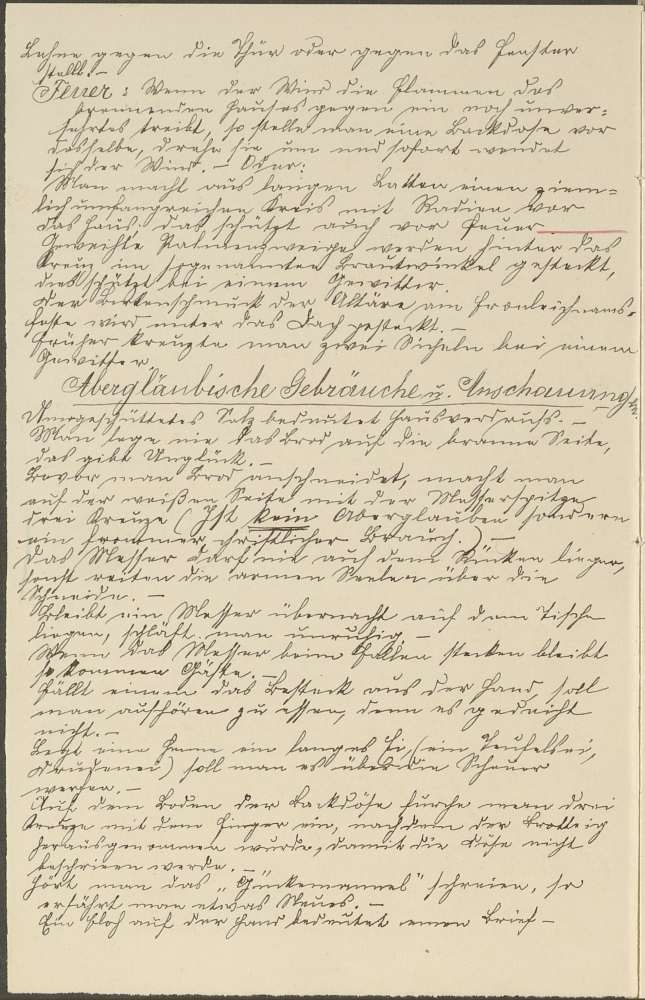 Lehne gegen die Thür oder gegen das Fenster
stellt. –
Feuer: Wenn der Wind die Flammen des
brennenden Hauses gegen ein noch unver=
sehrtes treibt, so stelle man eine Backdose vor
dasselbe, drehe sie um und sofort wendet
sich der Wind. – Oder:
Man macht aus langen Latten einen ziem=
lich umfangreichen Kreis mit Radien vor
das Haus; das schützt auch vor Feuer
Geweihte Palmenzweige werden hinter das
Kreuz im sogenannten Brautwinkel gesteckt,
dies schützt bei einem Gewitter.
Der Birkenschmuck der Altäre am Fronleichnams=
feste wird unter das Dach gesteckt. –
Früher kreuzte man zwei Sicheln bei einem
Gewitter.
Abergläubische Gebräuche u. Anschauungen.
Umgeschüttetes Salz bedeutet Hausverdruß. –
Man lege nie das Brod auf die braune Seite,
das gibt Unglück. –
Bevor man Brod anschneidet, macht man
auf der weißen Seite mit der Messerspitze
drei Kreuze (Ist kein Aberglauben sondern
ein frommer christlicher Brauch.) –
Das Messer darf nie auf dem Rücken liegen,
sonst reiten die armen Seelen über die
Schneide. –
Bleibt ein Messer übernacht auf dem Tische
liegen, schläft man unruhig. –
Wenn das Messer beim Fallen stecken bleibt
so kommen Gäste. –
Fällt einem das Besteck aus der Hand, soll
man aufhören zu essen, denn es gedeiht
nicht. –
Legt eine Henne ein langes Ei, (ein Teufelsei,
Drudenei) soll man es über die Scheuer
werfen. –
Auf dem Boden der Backdöse furche man drei
Kreuze mit dem Finger ein, nachdem der Brotteig
herausgenommen wurde, damit die Döse nicht
beschrieen werde. –
Hört man das „Gückemannel" schreien, so
erfährt man etwas Neues. –
Ein Floh auf der Hand bedeutet einen Brief –